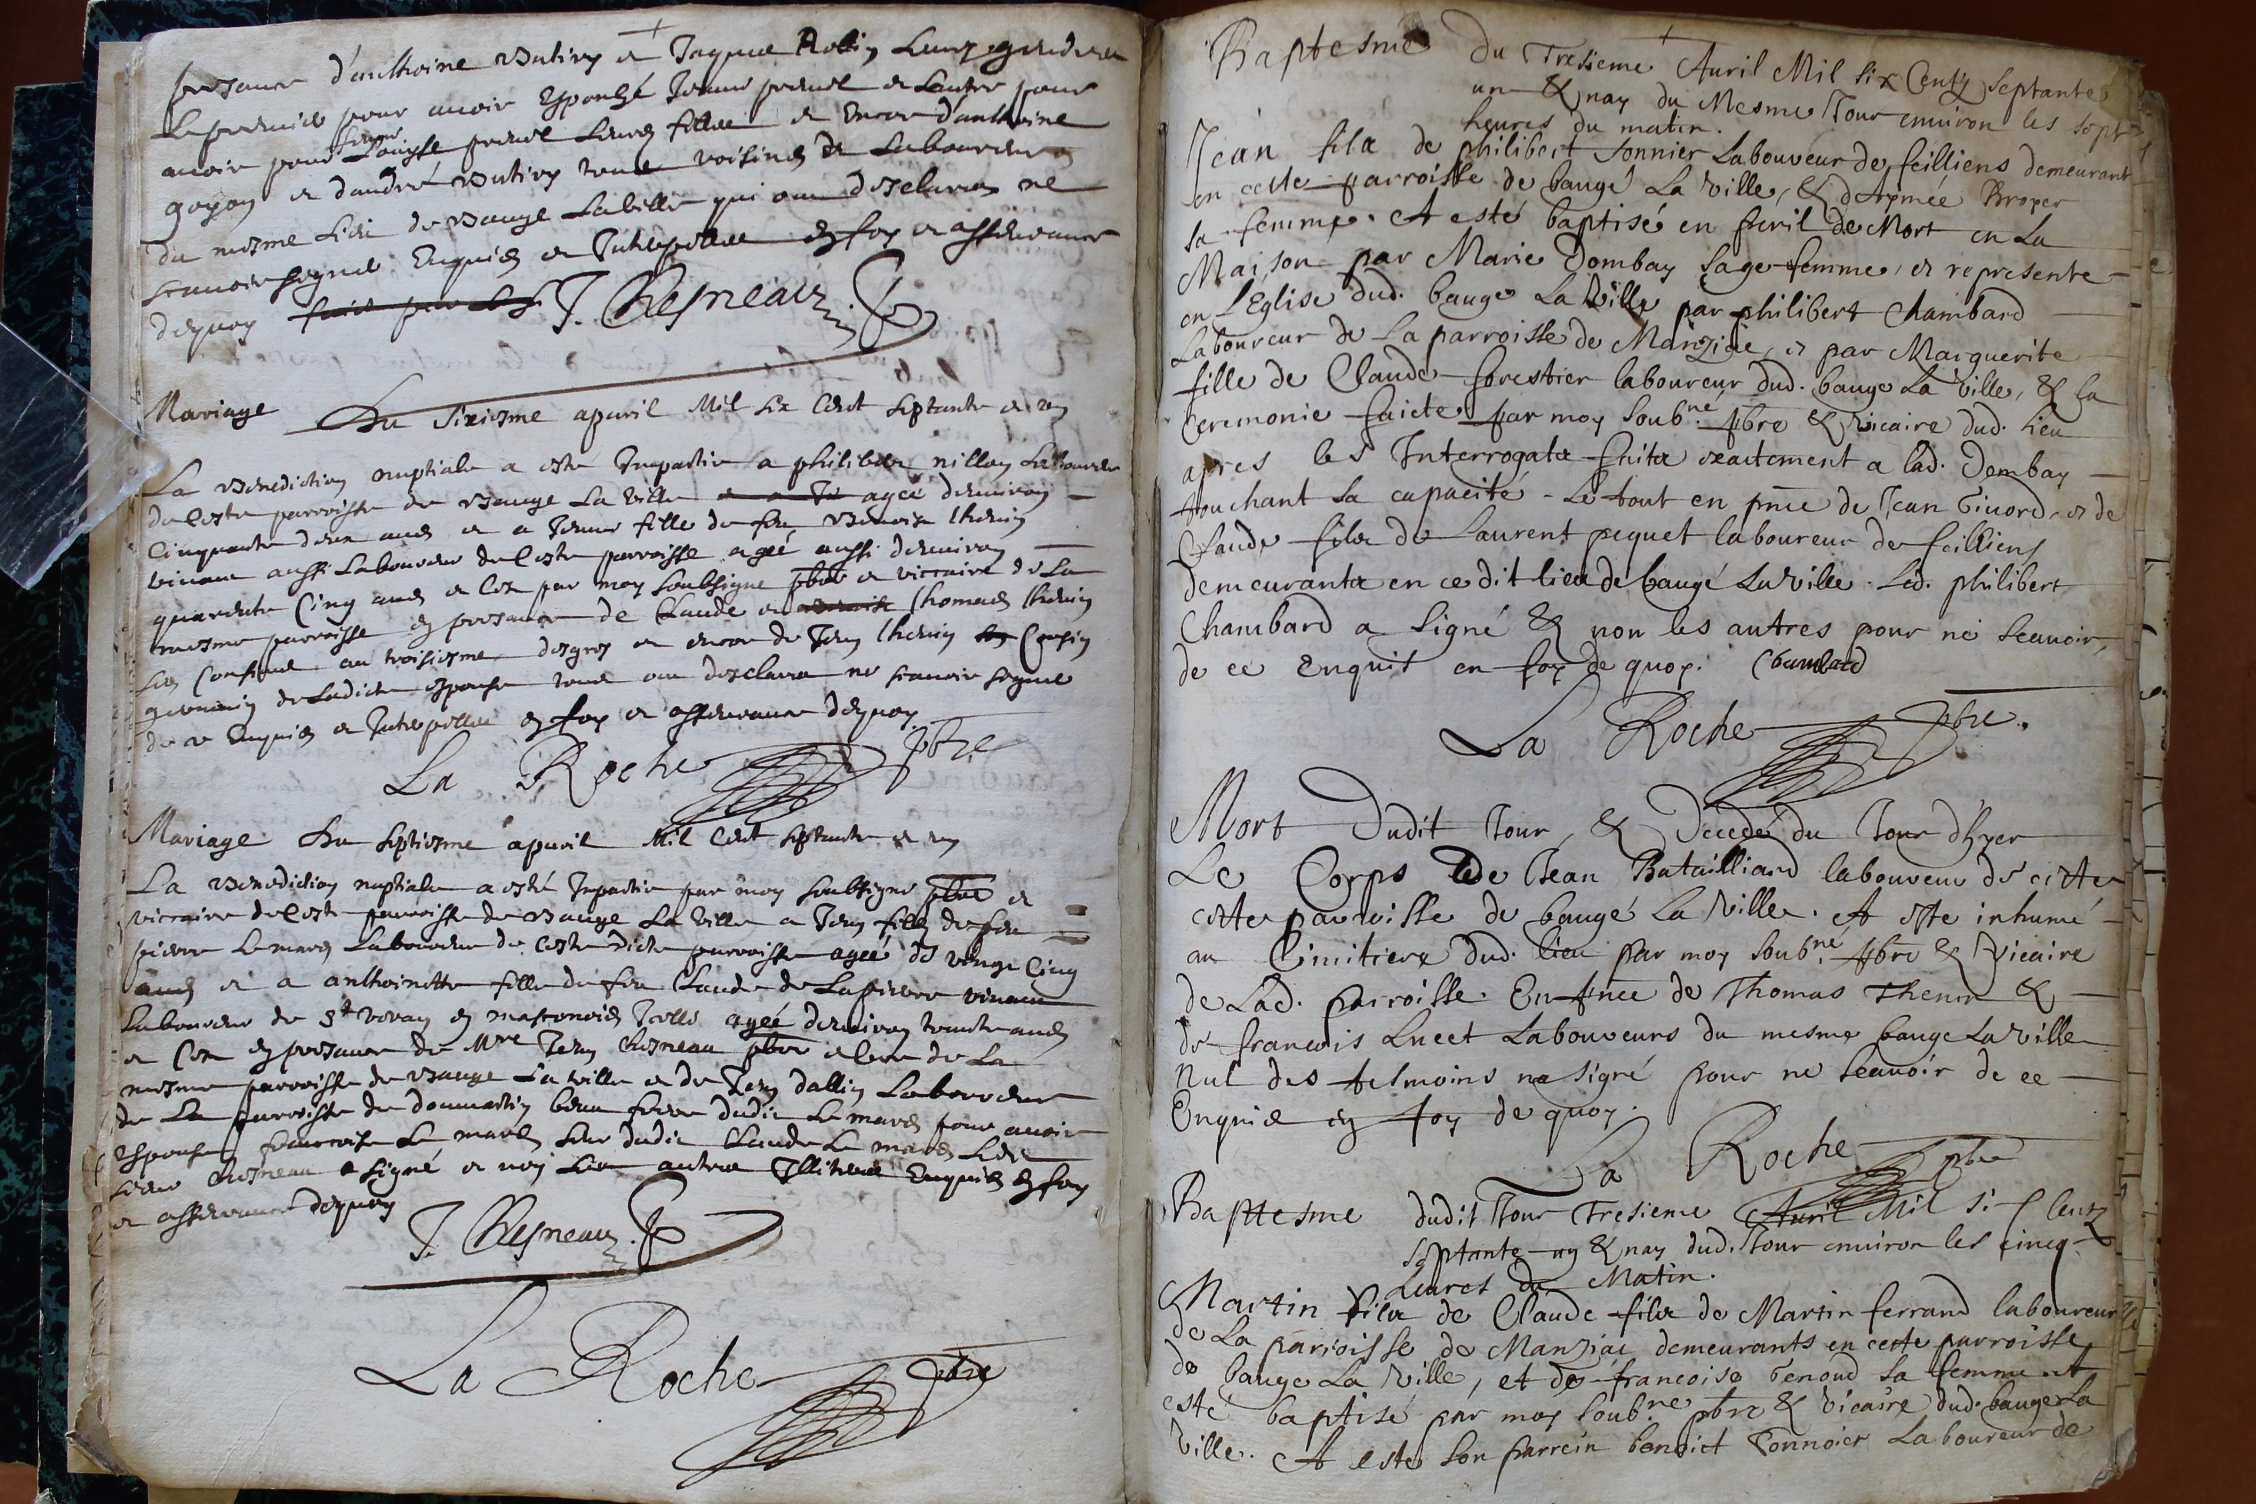 presance d'anthoine Butivy et Jaque Robin Leurs gendres
Le premier pour auoir Espousé Jeanne preuel et Lautre pour
auoir pour feme Louise preuel Leurs filles et Encor d'anthoine
goyon et d'andré Butivy tous voisins et Laboureurs
du mesme Lieu de Bauge Laville qui ont desclarés ne
scauoir signer Enquis et Interpellés en foy et assurance
dequoy J. Chesneau
Mariage Du Sixiesme apuril Mil six Cent septante et un
La Benediction nuptiale a esté Impartie a philibert nillon Laboureur
de Ceste parroisse de Bauge La Ville agee denuiron
Cinquante deux ans et a Jeanne fille de feu Benoist thenin
viuant aussi Laboureur de Ceste parroisse agée aussi denuiron
quarante Cinq ans et Ce par moy soubsigne pbre et viccaire de La
mesme parroisse en presance de Claude et Thomas thenin
ses Cousins au troisiesme desgres et encor de Jean thenin Cousin
germain de Ladicte espouse tous ont desclare ne scauoir signer
de ce Enquis et Interpellés en foy et assurance dequoy
La Roche pbre
Mariage Du septiesme apuril Mil Cent septante et un
La Benediction nuptiale a esté Impartie par moy soubsigne pbre et
viccaire de Ceste parroisse de Bauge La Ville a Jean fils de feu
pierre Lemarés Laboureur de Ceste dicte parroisse agée de vingt Cinq
ans et a anthoinette fille de feu Claude de Lapierre viuant
Laboureur de St veran en masconois Icelle agée denuiron trante ans
et Ce en presance de Mre Jean Chesneau pbre et Cure de La
mesme parroisse de Bauge La ville et de Jean dallin Laboureur
de La parroisse de dommartin beau frere dudit Le marés pour auoir
espousé francoise Le marés seur dudit Claude Le marés Ledit
sieur Chesneau a signé et non Les autres Illiteres Enquis en foy
et assurance dequoy
J. Chesneau
La Roche pbre
Baptesme du Tresieme Auril Mil six Centz septante
un & nay du Mesme Jour enuiron les sept
heures du matin.
Jean fils de philibert Sonnier Laboureur de feilliens demeurant
en cette parroisse de baugé La Ville, & d'Aymée Broyer
sa femme. A esté baptisé en peril de Mort en La
Maison par Marie Dombay sage-femme, et represente
en l'Eglise dud. bauge La Ville par philibert Chambard
Laboureur de La parroisse de Manziae, et par Marguerite
fille de Claude forestier laboureur dud. bauge La Ville, & la
Ceremonie faicte par moy soub.né pbre & Vicaire dud. Lieu
apres les Interrogats faits exactement a lad. Dembay
touchant sa capacité - Le tout en pnce de Jean Tiuord, et de
Claude fils de Laurent pequet laboureur de feilliens
demeurants en ce dit lieu de baugé La Ville. Led. philibert
Chambard a signé & non les autres pour ne scauoir,
de ce Enquis en foy de quoy. Chambard
La Roche pbre.
Mort Dudit Jour, & Décedé du Jour d'hyer
Le Corps de Jean Batailliard laboureur de cette
cette parroisse de baugé La Ville. A este inhumé
au Cimitiere dud. lieu par moy soub.né pbre & Vicaire
de Lad. parroisse. En pnce de Thomas Thenin &
de francois Lueet Laboureurs du mesme bauge La Ville
Nul des tesmoins na signé pour ne scauoir de ce
Enquis en foy de quoy.
La Roche pbre
Baptesme dudit Jour Tresieme Auril Mil six Centz
septante un & nay dud. Jour enuiron les cincq
heures du Matin.
Martin fils de Claude fils de Martin ferrand laboureur
de La parroisse de Manziae demeurants en cette parroisse
de bauge La Ville, et de francoise Genoud sa femme. et
esté baptisé par moy soub.né pbre & Vicaire dud. bauge La
Ville. A esté son parrein benoict Tonnoier Laboureur de